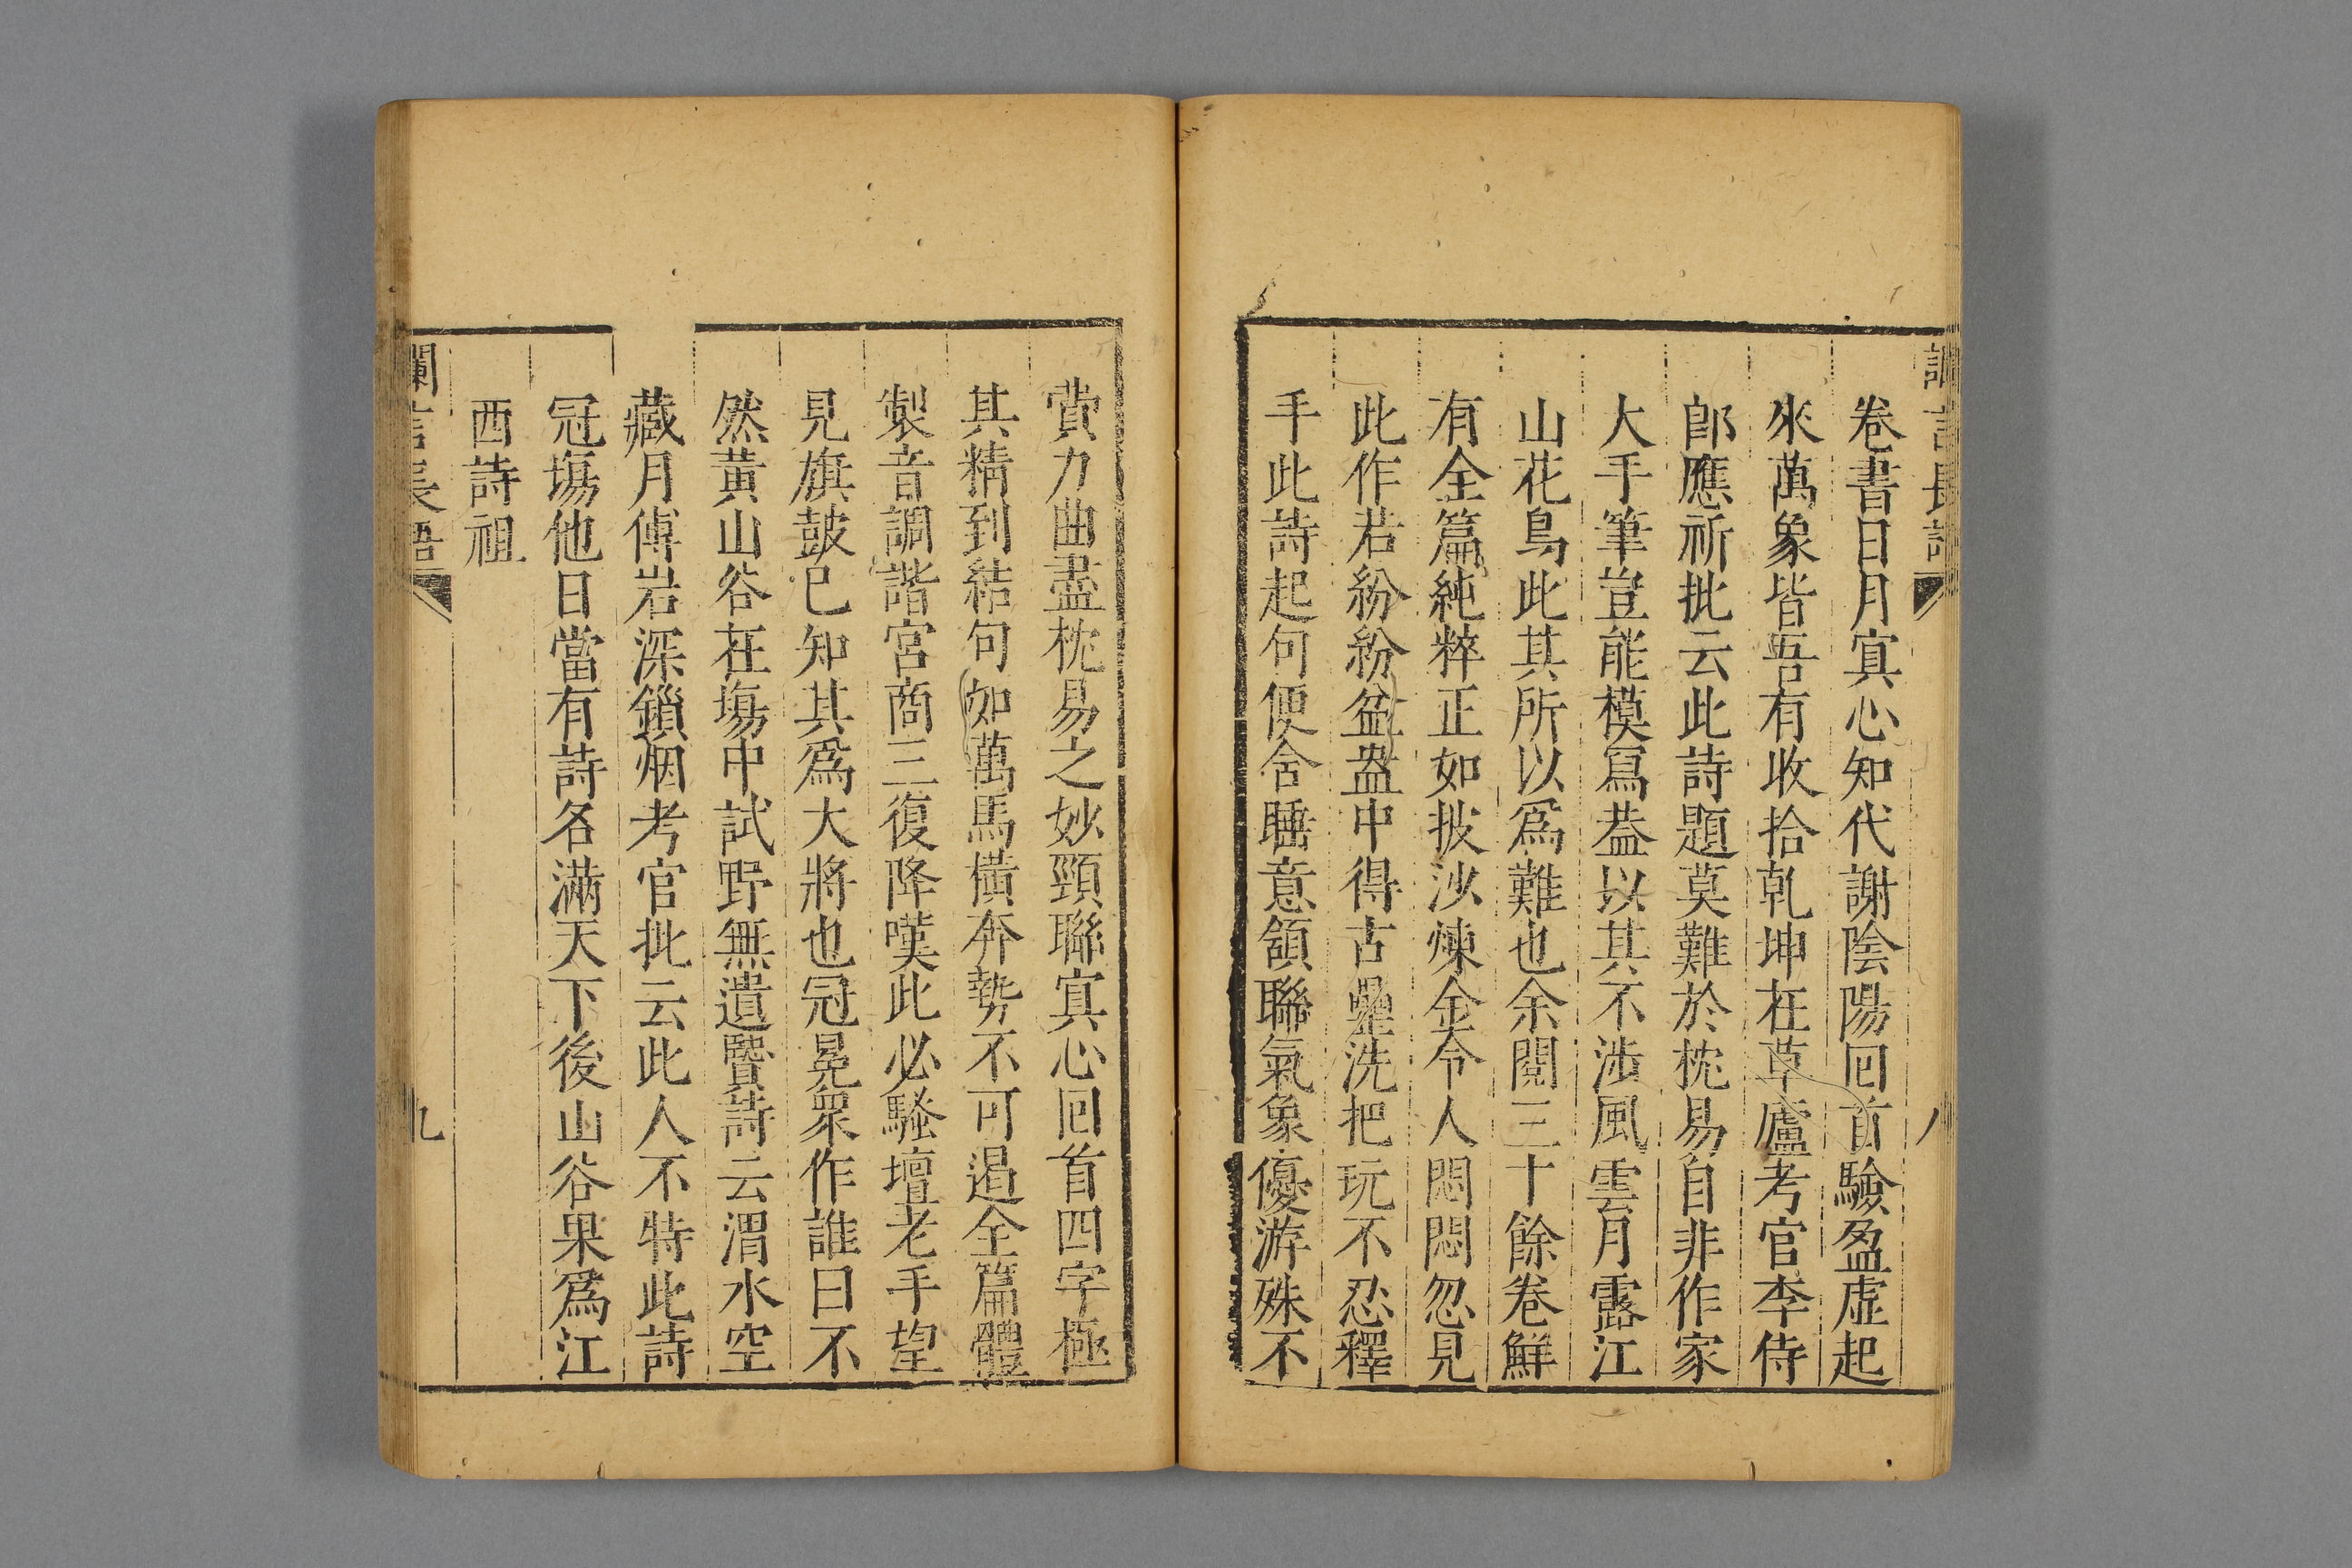 讕言長語
八
卷書日月寘心知代謝陰陽囘首驗盈虛起
來萬象皆吾有收拾乾坤在草廬考官李侍
郎應祈批云此詩題莫難於枕易自非作家
大手筆豈能模寫葢以其不涉風雲月露江
山花鳥此其所以爲難也余閱三十餘卷鮮
有全篇純粹正如披沙煉金令人悶悶忽見
此作若紛紛盆盎中得古罍洗把玩不忍釋
手此詩起句便含睡意頷聯氣象優游殊不
費力曲盡枕易之妙頸聯寘心囘首四字極
其精到結句如萬馬橫奔勢不可遏全篇體
製音調諧宮商三復降嘆此必騷壇老手望
見旗鼓已知其爲大將也冠冕衆作誰曰不
然黃山谷在塲中試野無遺賢詩云渭水空
藏月傅岩深鎖烟考官批云此人不特此詩
冠塲他日當有詩名滿天下後山谷果爲江
西詩祖
讕言長語
九